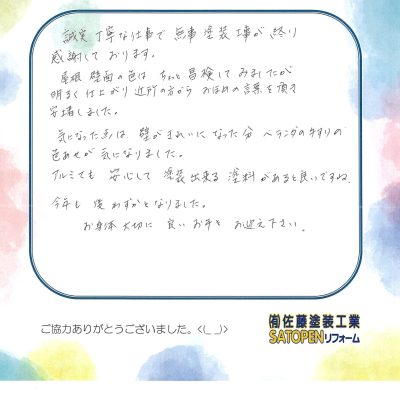 誠実 丁寧な仕事で 無事 塗装工事が終り
感謝して おります。
屋根 壁面の色は ちょっと冒険して みましたが
明るく仕上がり 近所の方から おほめの言葉を頂き
安堵しました。
気になった点は 壁がきれいになった分 ベランダの手すりの
色あせが 気になりました。
アルミでも 安心して 塗装出来る 塗料があると良いですね。
今年も 残りわずかとなりました。
お身体大切に 良いお年を お迎え下さい。
ご協力ありがとうございました。<(_ _)>
㈲佐藤塗装工業
SATOPENリフォーム